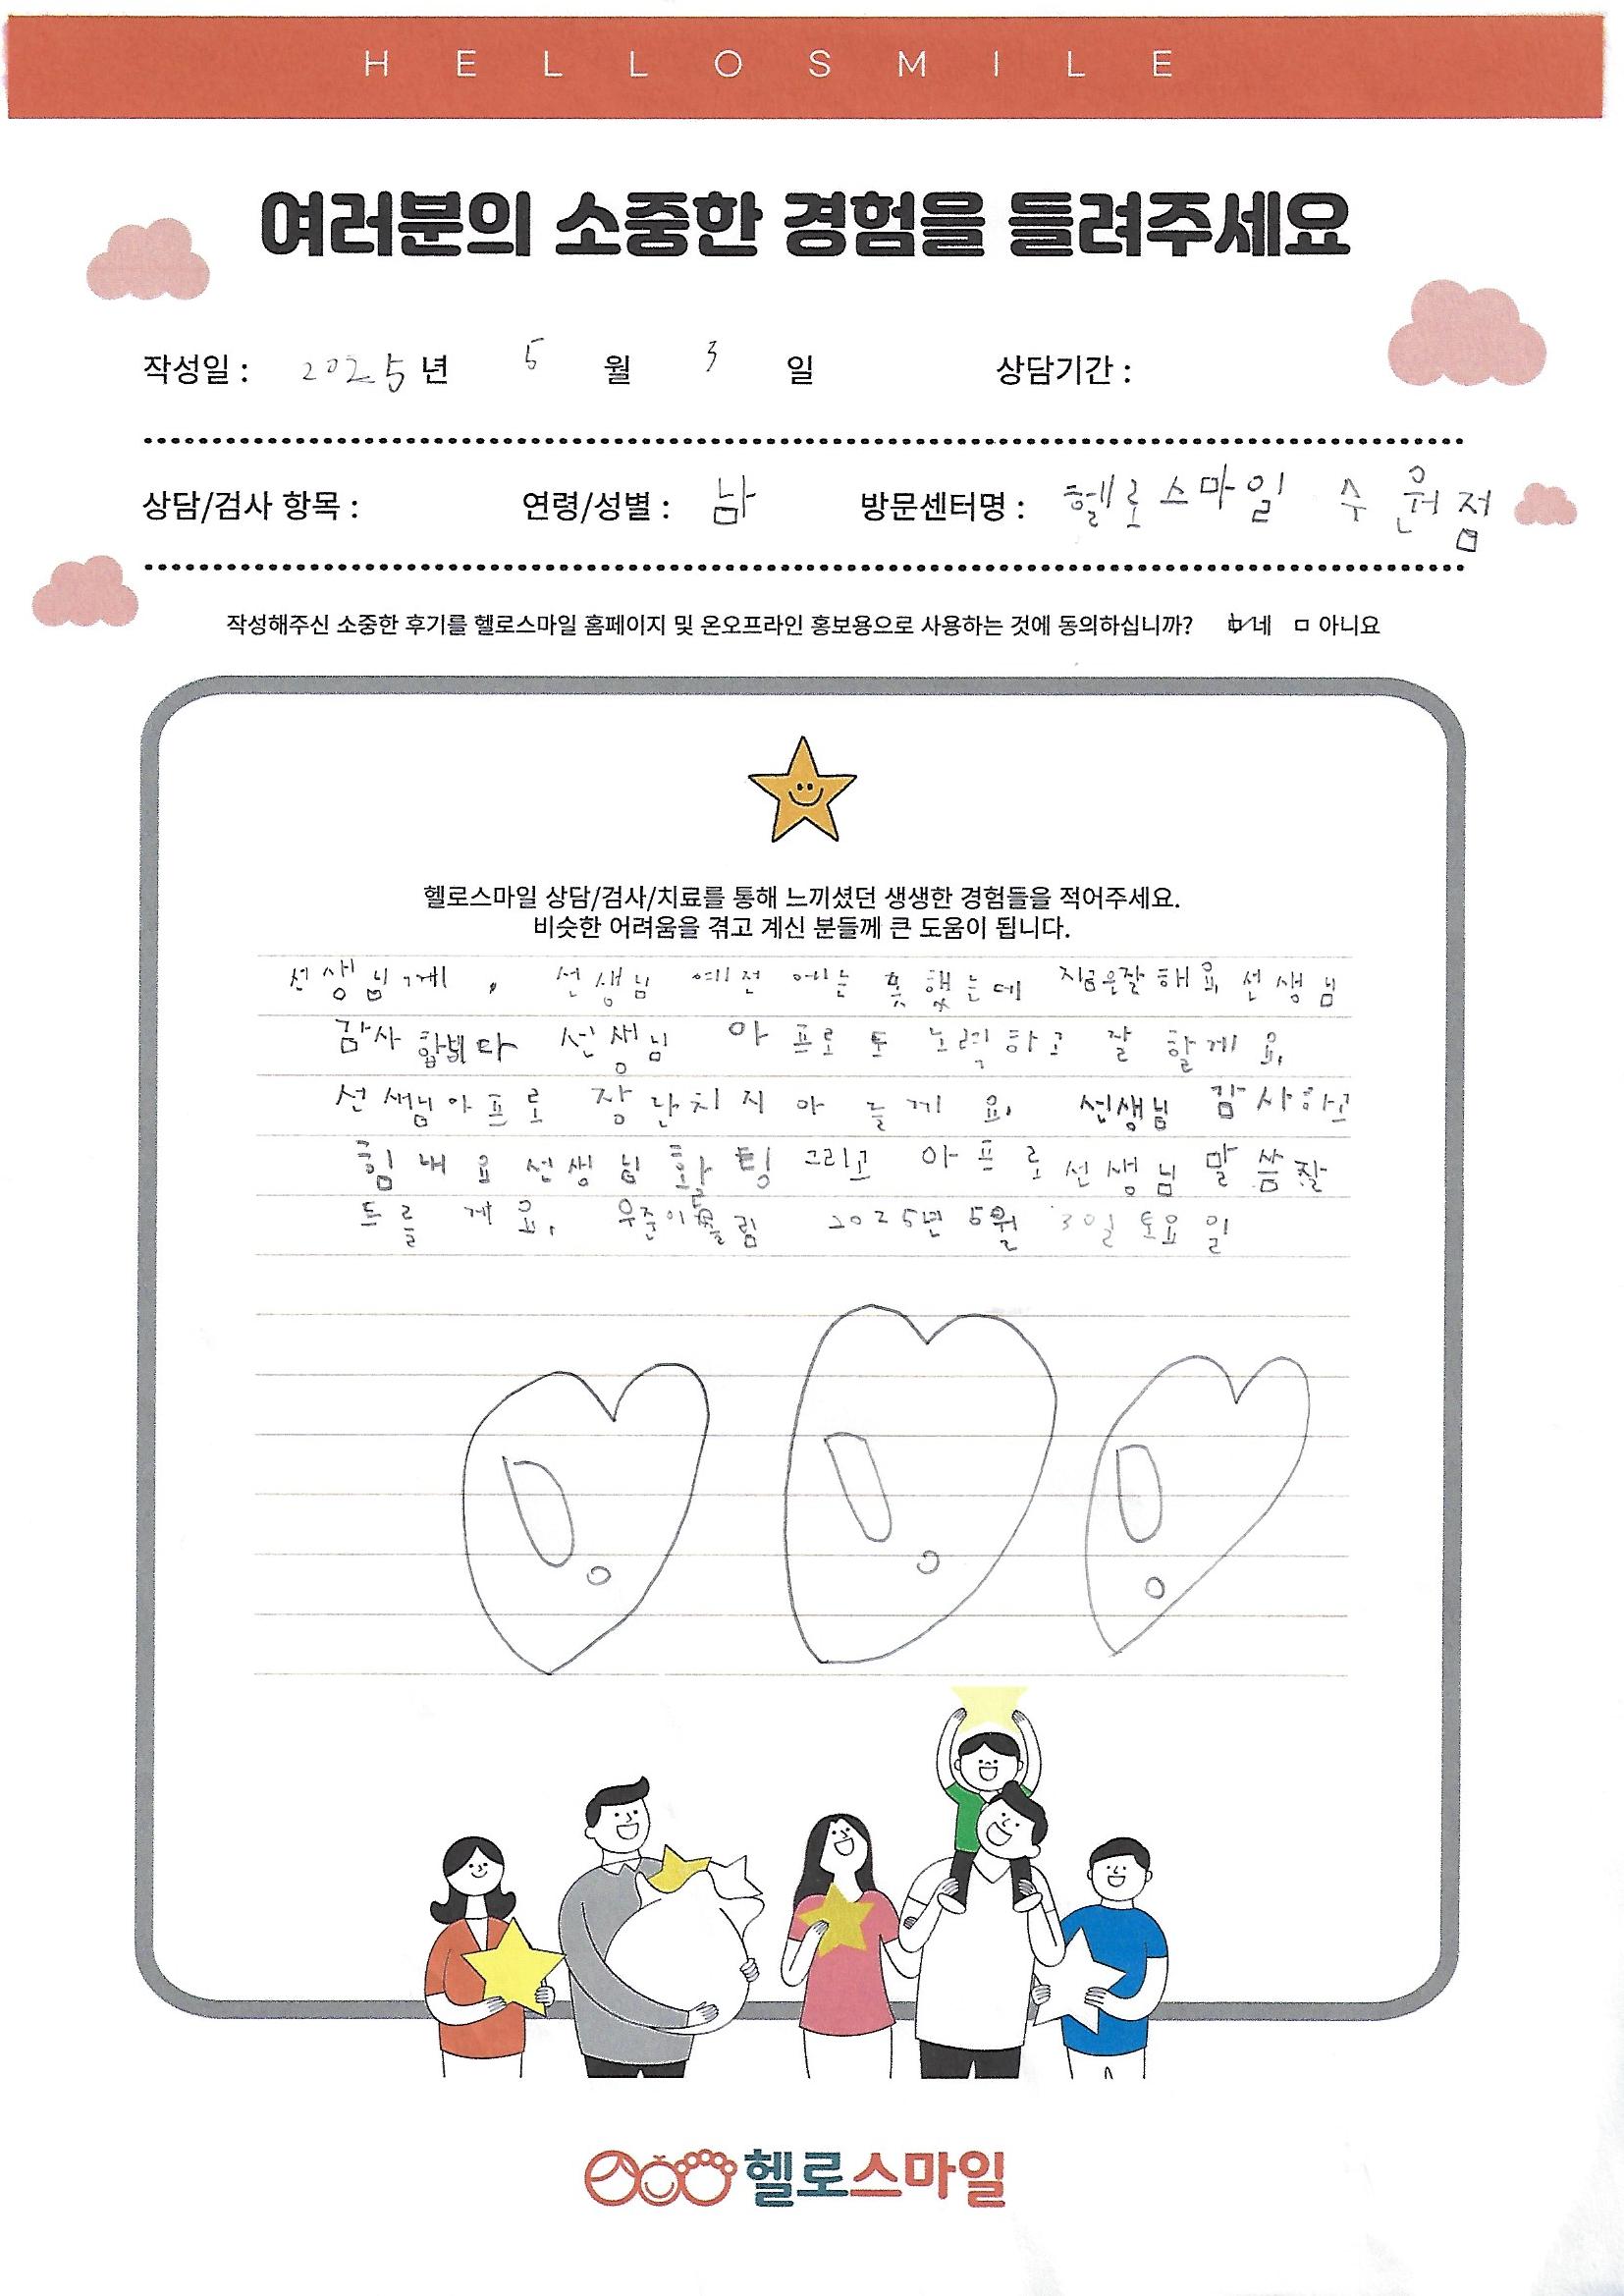 HELLOSMILE
여러분의 소중한 경험을 들려주세요
작성일 : 2025년 5 월 3 일 상담기간 :
상담/검사 항목 : 연령/성별 : 남 방문센터명 : 헬로스마일 수원점
작성해주신 소중한 후기를 헬로스마일 홈페이지 및 온오프라인 홍보용으로 사용하는 것에 동의하십니까? ㅁ네 ㅁ아니요
헬로스마일 상담/검사/치료를 통해 느끼셨던 생생한 경험들을 적어주세요.
비슷한 어려움을 겪고 계신 분들께 큰 도움이 됩니다.
선생님께, 선생님 예전 에는 못했는데 지금은잘해요, 선생님
감사합니다 선생님 아프로도 노력하고 잘 할게요,
선생님아프로 장난치지 아늘게요, 선생님 감사하고
힘내요 선생님 화팅 그리고 아프로선생님 말씀잘
드를게요, 우준이올림 2025년 5월 3일 토요일
헬로스마일